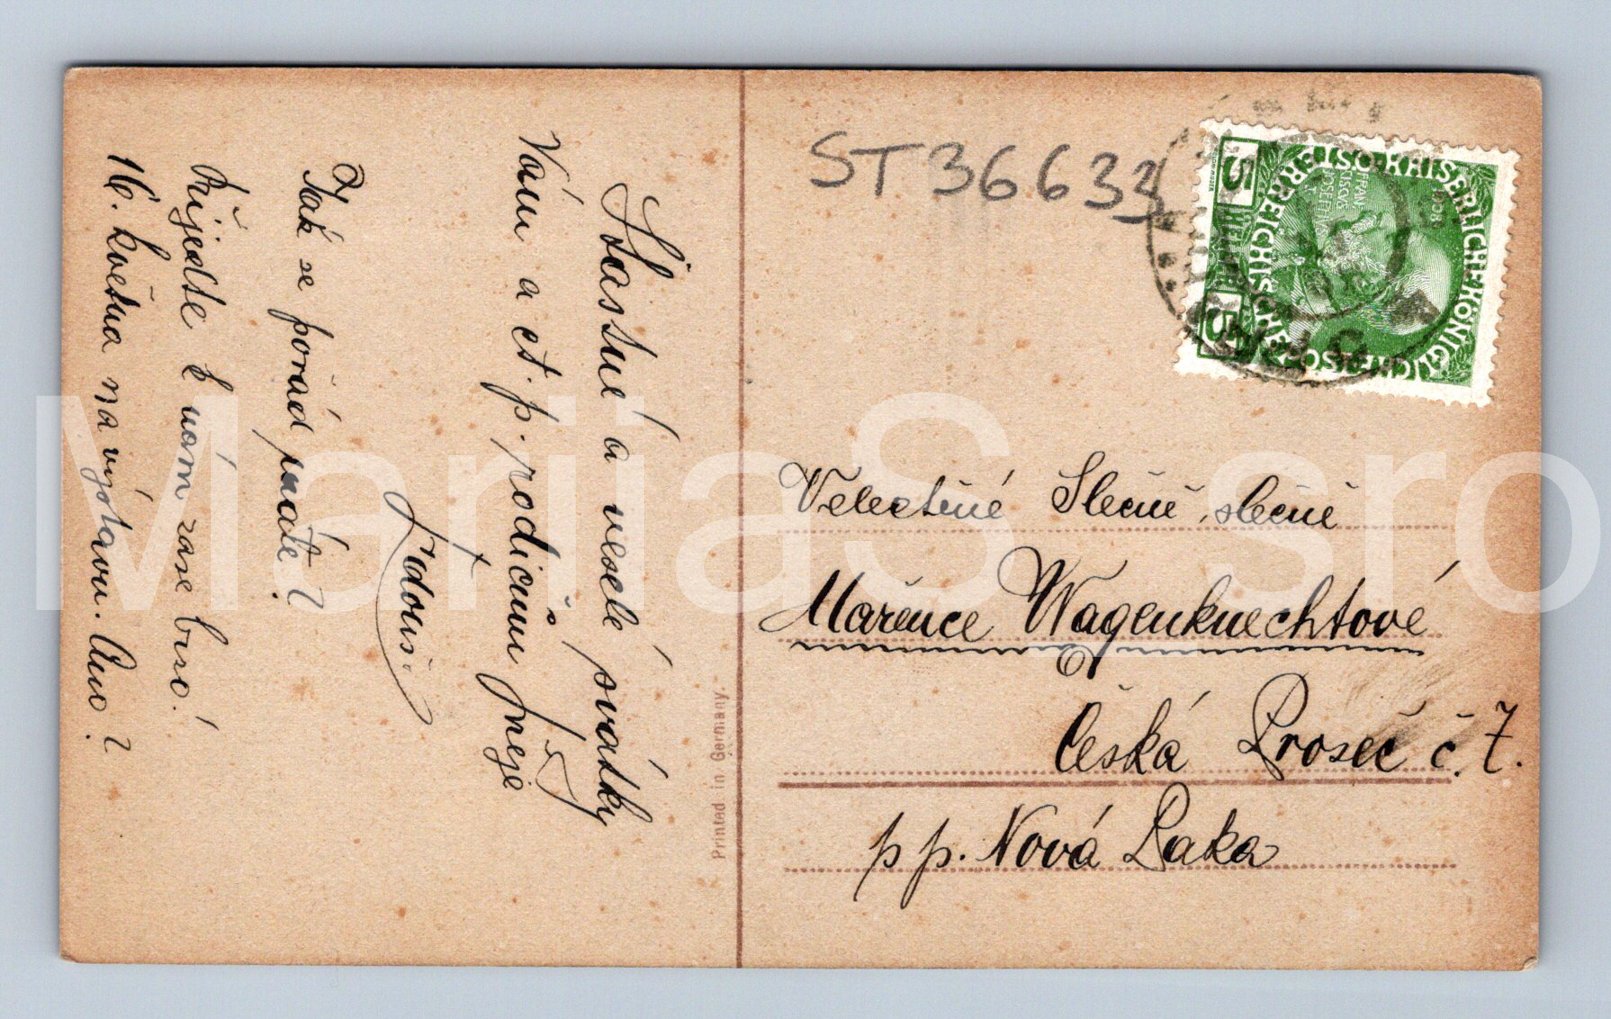 Šťastné a veselé svátky
Vám a ct. p. rodičům přeje
Fdouš.
Jak se pořád máte?
Přijeďte k nám zase brzo!
16. května na výstavu. Ano?
Printed in Germany.
ST36633
KAISERLICHE KÖNIGLICHE
ÖSTERREICHISCHE
5
5
1908
Velectěné Slečně, slečně
Mařence Wagenknechtové
Česká Proseč č. 7.
pp. Nová Paka
MarijaS sro